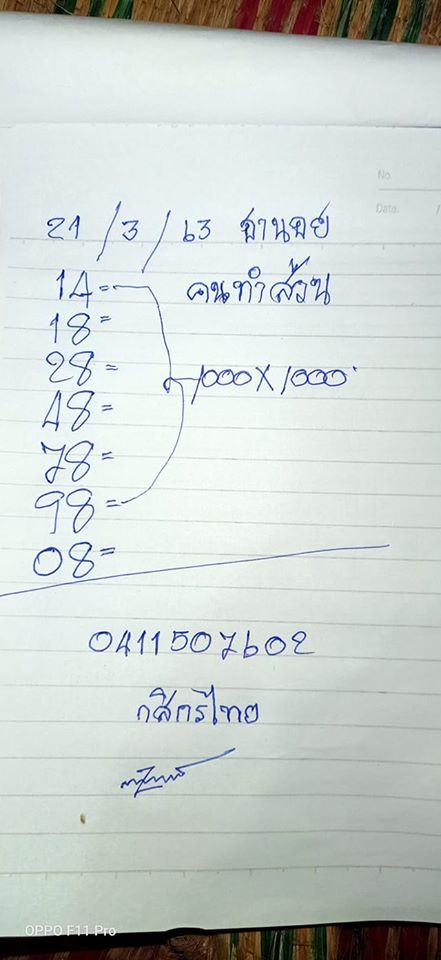 No.
Date. /
21/3/63 ฮานอย
14= คนทำส้วน
18=
28= 1000X1000
48=
78=
98=
08=
0411507602
กสิกรไทย
OPPO F11 Pro